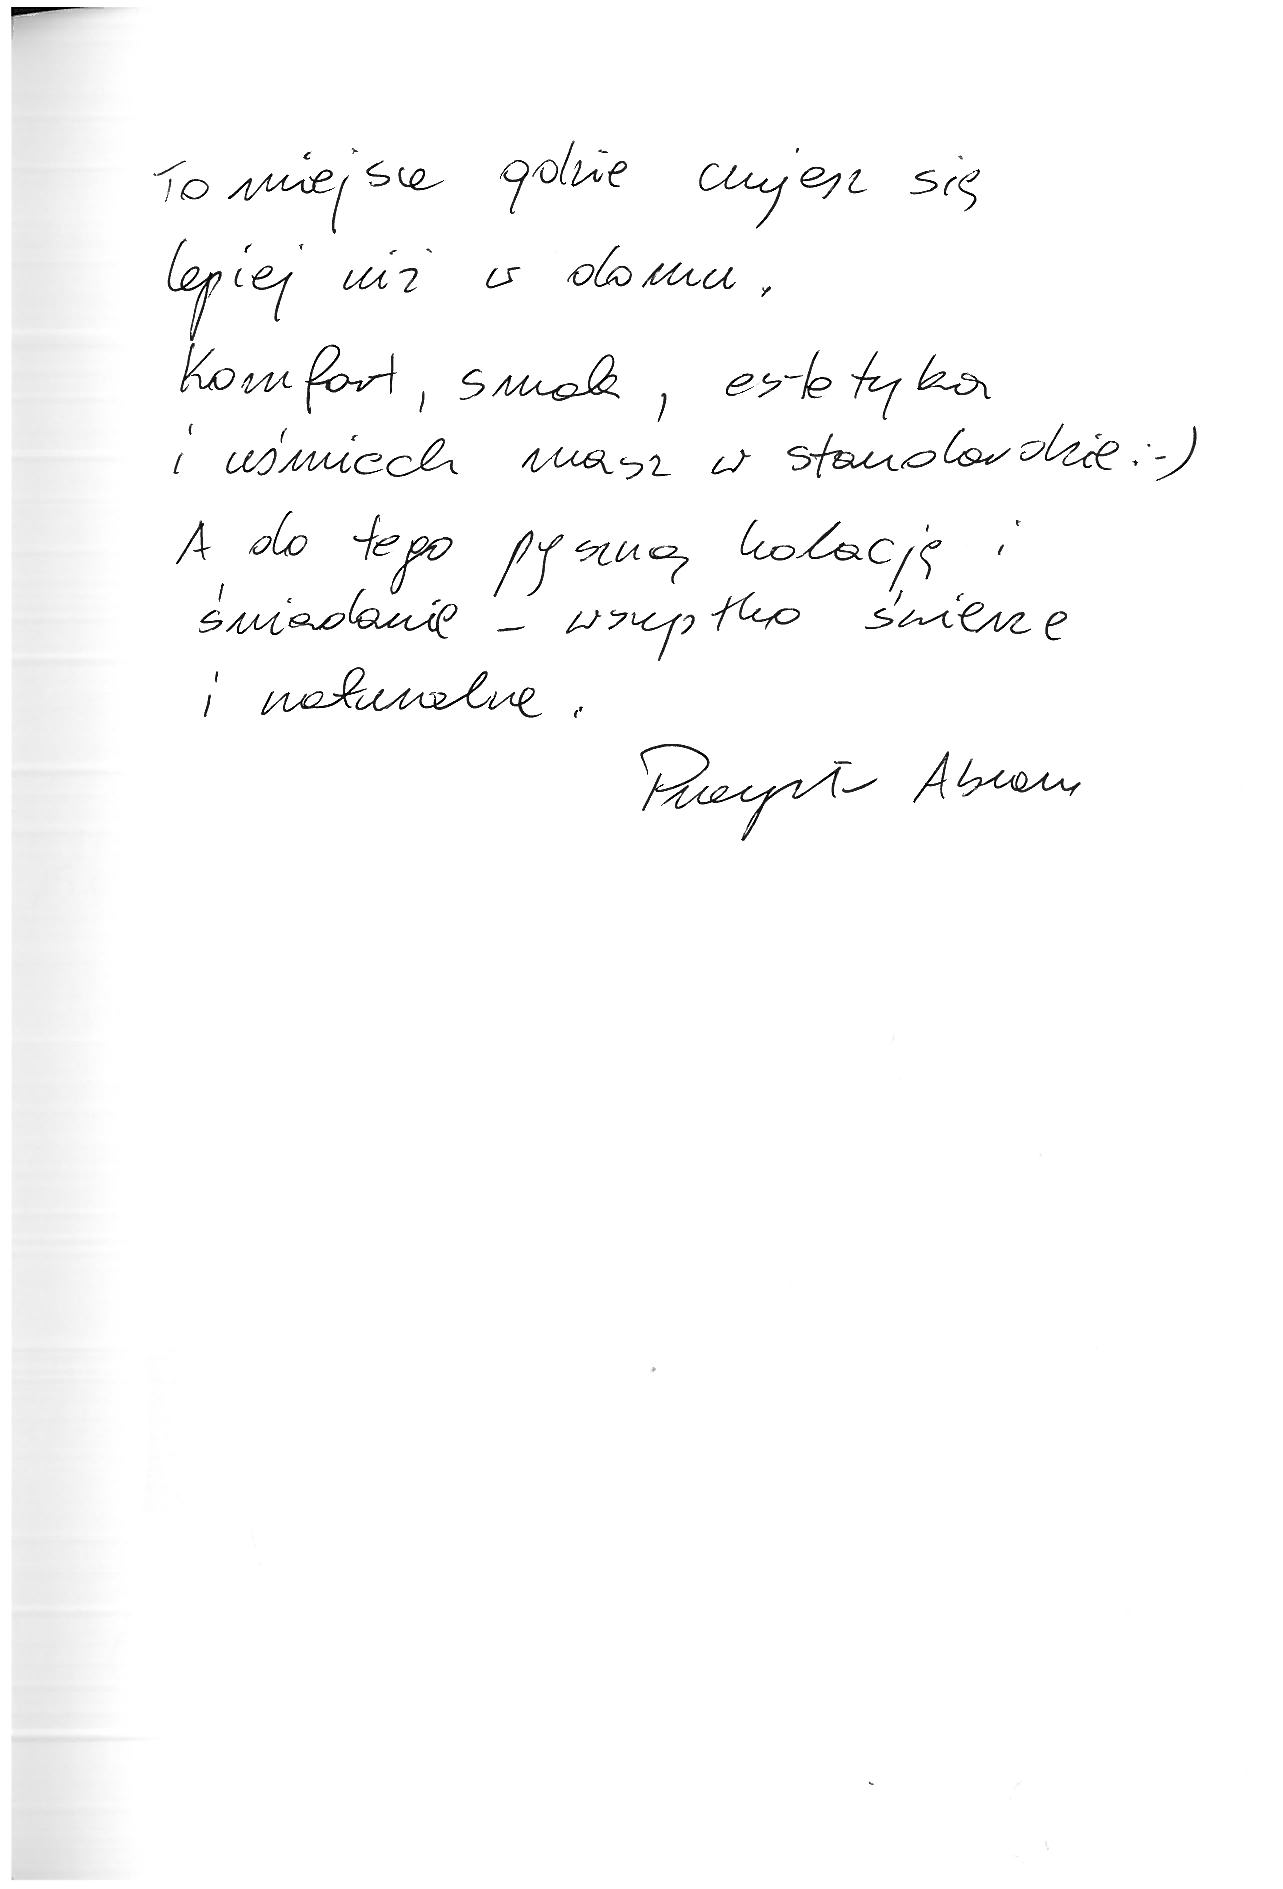 To miejsce gdzie czujesz się
lepiej niż w domu.
Komfort, smak, estetyka
i uśmiech masz w standardzie :-)
A do tego pyszną kolację i
śniadanie - wszystko świeże
i naturalne.
Abram